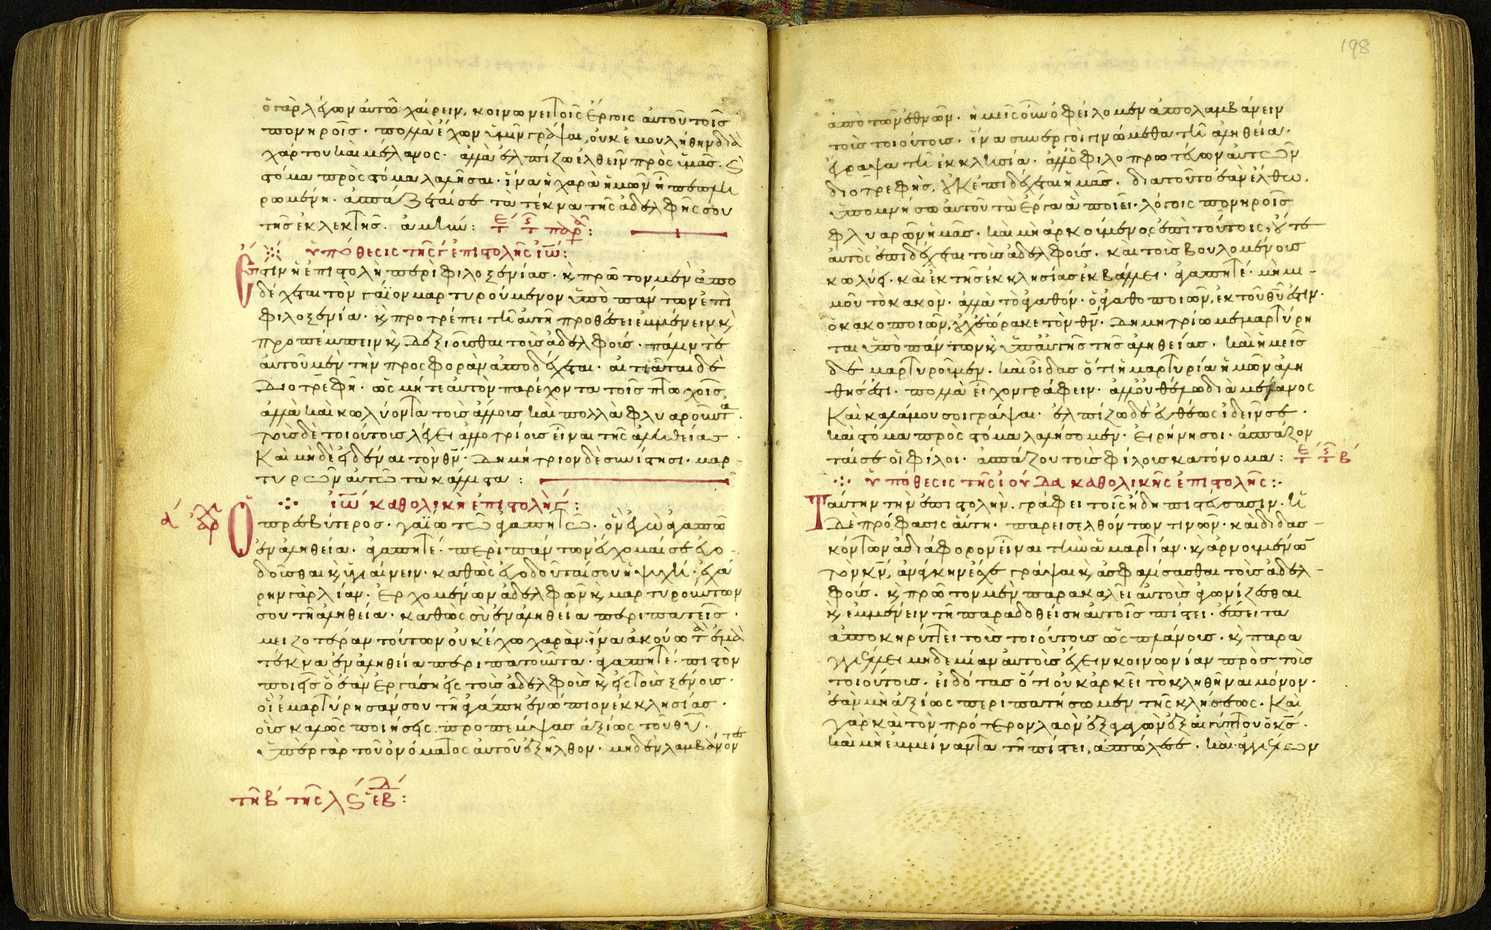 ὁ γὰρ λέγων αὐτῶ χαίρειν, κοινωνεῖ τοῖς ἔργοις αὐτοῦ τοῖς
πονηροῖς· πολλὰ ἔχων ὑμῖν γράψαι, οὐκ ἐβουλήθην διὰ
χάρτου καὶ μέλανος· ἀλλὰ ἐλπίζω ἐλθεῖν πρὸς ὑμᾶς· ϗ
στόμα πρὸς στόμα λαλῆσαι· ἵνα ἡ χαρὰ ἡμῶν ἦ πεπλη
ρωμένη· ἀσπάζεταί σε τὰ τέκνα τῆς ἀδελφῆς σου
τῆς ἐκλεκτῆς. ἀμήν:
ὑπόθεσις τῆς γ ἐπιστολῆς ἰω:
Ἔστιν ἡ ἐπιστολὴ περὶ φιλοξενίας· ϗ πρῶτον μὲν ἀπο
δέχεται τὸν γάϊον μαρτυρούμενον ὑπὸ πάντων ἐπὶ
φιλοξενία· ϗ προτρέπει τῆ αὐτῆ προθέσει ἐμμένειν ϗ
προπέμπειν ϗ δεξιοῦσθαι τοὺς ἀδελφούς· πάλιν τε
αὐτοῦ μὲν τὴν προσφορὰν ἀποδέχεται· αἰτιᾶται δὲ
Διοτρεφῆ· ὡς μήτε αὐτὸν παρέχοντα τοῖς πτωχοῖς,
ἀλλὰ καὶ κωλύοντα τοὺς ἄλλους καὶ πολλὰ φλυαροῦντα·
τοὺς δὲ τοιούτους λέγει ἀλλοτρίους εἶναι τῆς ἀληθείας·
Καὶ μηδὲ εἰδέναι τὸν θν· Δημήτριον δὲ συνίστησι· μαρ
τυρῶν αὐτῶ τὰ κάλλιστα:
ἰω καθολικὴ ἐπιστολὴ γ:
Ὁ πρεσβύτερος· γαΐω τῶ ἀγαπητῶ· ὃν ἐγὼ ἀγαπῶ
ἐν ἀληθεία· ἀγαπητέ· περὶ πάντων εὔχομαί σε εὐο
δοῦσθαι ϗ ὑγιαίνειν· καθὼς εὐοδοῦταί σου ἡ ψυχή· ἐχά
ρην γὰρ λίαν· ἐρχομένων ἀδελφῶν ϗ μαρτυρούντων
σου τῆ ἀληθεία· καθὼς σὺ ἐν ἀληθεία περιπατεῖς·
μειζοτέραν τούτων οὐκ ἔχω χαρὰν· ἵνα ἀκούω τὰ ἐμὰ
τέκνα ἐν ἀληθεία περιπατοῦντα· ἀγαπητέ· πιστὸν
ποιεῖς ὃ ἐὰν ἐργάση εἰς τοὺς ἀδελφοὺς ϗ εἰς τοὺς ξένους·
οἳ ἐμαρτύρησάν σου τῆ ἀγάπη ἐνώπιον ἐκκλησίας·
οὓς καλῶς ποιήσεις προπέμψας ἀξίως τοῦ θυ·
ὑπὲρ γὰρ τοῦ ὀνόματος αὐτοῦ ἐξῆλθον· μηδὲν λαμβάνοντες
198
ἀπὸ τῶν ἐθνῶν· ἡμεῖς οὖν ὀφείλομεν ἀπολαμβάνειν
τοὺς τοιούτους· ἵνα συνεργοὶ γινώμεθα τῆ ἀληθεία·
ἔγραψα τῆ ἐκκλησία· ἀλλ' ὁ φιλοπρωτεύων αὐτῶν
διοτρεφὴς, οὐκ ἐπιδέχεται ἡμᾶς· διὰ τοῦτο ἐὰν ἔλθω,
ὑπομνήσω αὐτοῦ τὰ ἔργα ἃ ποιεῖ· λόγοις πονηροῖς
φλυαρῶν ἡμᾶς· καὶ μὴ ἀρκούμενος ἐπὶ τούτοις, οὔτε
αὐτὸς ἐπιδέχεται τοὺς ἀδελφούς· καὶ τοὺς βουλομένους
κωλύει· καὶ ἐκ τῆς ἐκκλησίας ἐκβάλλει· ἀγαπητέ· μὴ μι
μοῦ τὸ κακὸν· ἀλλὰ τὸ ἀγαθόν· ὁ ἀγαθοποιῶν, ἐκ τοῦ θυ ἐστιν·
ὁ κακοποιῶν, οὐχ ἑώρακε τὸν θν· Δημητρίω μεμαρτύρη
ται ὑπὸ πάντων ϗ ὑπ' αὐτῆς τῆς ἀληθείας· καὶ ἡμεῖς
δὲ μαρτυροῦμεν· καὶ οἶδας ὅτι ἡ μαρτυρία ἡμῶν ἀλη
θής ἐστι· πολλὰ εἶχον γράφειν· ἀλλ' οὐ θέλω διὰ μέλανος
Καὶ καλάμου σοι γράψαι· ἐλπίζω δὲ εὐθέως ἰδεῖν σε·
καὶ στόμα πρὸς στόμα λαλήσομεν· εἰρήνη σοι· ἀσπάζον
ταί σε οἱ φίλοι· ἀσπάζου τοὺς φίλους κατ' ὄνομα:
ὑπόθεσις τῆς ἰούδα καθολικῆς ἐπιστολῆς:
Ταύτην τὴν ἐπιστολὴν· γράφει τοῖς ἤδη πιστεύσασιν· ἡ
δὲ πρόφασις αὕτη· παρεισελθόντων τινῶν· καὶ διδασ
κόντων ἀδιάφορον εἶναι τὴν ἁμαρτίαν· ϗ ἀρνουμένων
τὸν κν, ἀνάγκην ἔσχε γράψαι ϗ ἀσφαλίσασθαι τοὺς ἀδελ
φούς· ϗ πρῶτον μὲν παρακαλεῖ αὐτοὺς ἀγωνίζεσθαι
ϗ ἐμμένειν τῆ παραδοθείση αὐτοῖς πίστει· ἔπειτα
ἀποκηρύττει τοὺς τοιούτους ὡς πλάνους· ϗ παρα
γγέλλει μηδεμίαν αὐτοὺς ἔχειν κοινωνίαν πρὸς τοὺς
τοιούτους· εἰδότας ὅτι οὐκ ἀρκεῖ τὸ κληθῆναι μόνον·
ἐὰν μὴ ἀξίως περιπατήσωμεν τῆς κλήσεως· Καὶ
γὰρ καὶ τὸν πρότερον λαὸν ἐξαγαγὼν ἐξ αἰγύπτου ὁ κς·
καὶ μὴ ἐμμείναντα τῆ πίστει, ἀπώλεσε· καὶ ἀγγέλων